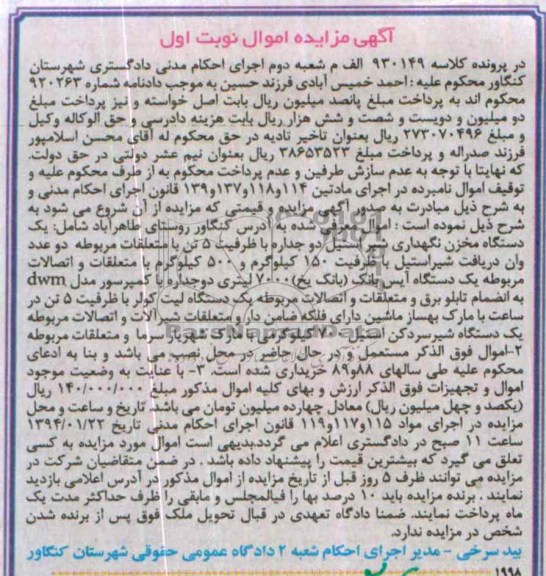 آگهی مزایده اموال نوبت اول
در پرونده کلاسه ۹۳۰۱۴۹ الف م شعبه دوم اجرای احکام مدنی دادگستری شهرستان
کنگاور محکوم علیه : احمد خمیس آبادی فرزند حسین به موجب دادنامه شماره ۹۲۰۲۶۳
محکوم اند به پرداخت مبلغ پانصد میلیون ریال بابت اصل خواسته و نیز پرداخت مبلغ
دو میلیون و دویست و شصت و شش هزار ریال بابت هزینه دادرسی و حق الوکاله وکیل
و مبلغ ۲۷۳۰۷۰۴۹۶ ریال بعنوان تاخیر تادیه در حق محکوم له آقای محسن اسلامپور
فرزند صدراله و پرداخت مبلغ ۳۸۶۵۳۵۲۳ ریال بعنوان نیم عشر دولتی در حق دولت.
که نهایتا با توجه به عدم سازش طرفین و عدم پرداخت محکوم به از طرف محکوم علیه و
توقیف اموال نامبرده در اجرای مادتین ۱۱۴و۱۱۸و۱۳۷و۱۳۹ قانون اجرای احکام مدنی و
به شرح ذیل مبادرت به صدور آگهی مزایده و قیمتی که مزایده از آن شروع می شود به
شرح ذیل نموده است : اموال معرفی شده به آدرس کنگاور روستای طاهرآباد شامل: یک
دستگاه مخزن نگهداری شیر استیل دو جداره با ظرفیت ۵ تن با متعلقات مربوطه دو عدد
وان دریافت شیراستیل با ظرفیت ۱۵۰ کیلوگرم و ۵۰۰ کیلوگرم با متعلقات و اتصالات
مربوطه یک دستگاه آیس بانک (بانک یخ) ۷۰۰۰ لیتری دوجداره با کمپرسور مدل dwm
به انضمام تابلو برق و متعلقات و اتصالات مربوطه یک دستگاه لیت کولر با ظرفیت ۵ تن در
ساعت با مارک بهساز ماشین دارای فلکه ضامن دار و متعلقات شیر آلات و اتصالات مربوطه
یک دستگاه شیرسردکن استیل کیلوگرمی با مارک شهریار سرما و متعلقات مربوطه
۲-اموال فوق الذکر مستعمل و در حال حاضر در محل نصب می باشد و بنا به ادعای
محکوم علیه طی سالهای ۸۸و۸۹ خریداری شده است. ۳- با عنایت به وضعیت موجود
اموال و تجهیزات فوق الذکر ارزش و بهای کلیه اموال مذکور مبلغ ۱۴۰/۰۰۰/۰۰۰ ریال
(یکصد و چهل میلیون ریال) معادل چهارده میلیون تومان می باشد. تاریخ و ساعت و محل
مزایده در اجرای مواد ۱۱۵و۱۱۷و۱۱۹ قانون اجرای احکام مدنی تاریخ ۱۳۹۴/۰۱/۲۲
ساعت ۱۱ صبح در دادگستری اعلام می گردد.بدیهی است اموال مورد مزایده به کسی
تعلق می گیرد که بیشترین قیمت را پیشنهاد داده باشد . در ضمن متقاضیان شرکت در
مزایده می توانند ظرف ۵ روز قبل از تاریخ مزایده از اموال مذکور در آدرس اعلامی بازدید
نمایند . برنده مزایده باید ۱۰ درصد بها را فیالمجلس و مابقی را ظرف حداکثر مدت یک
ماه پرداخت نمایند. ضمنا دادگاه تعهدی در قبال تحویل ملک فوق پس از برنده شدن
شخص در مزایده ندارد.
بید سرخی - مدیر اجرای احکام شعبه ۲ دادگاه عمومی حقوقی شهرستان کنگاور
۱۹۹۸